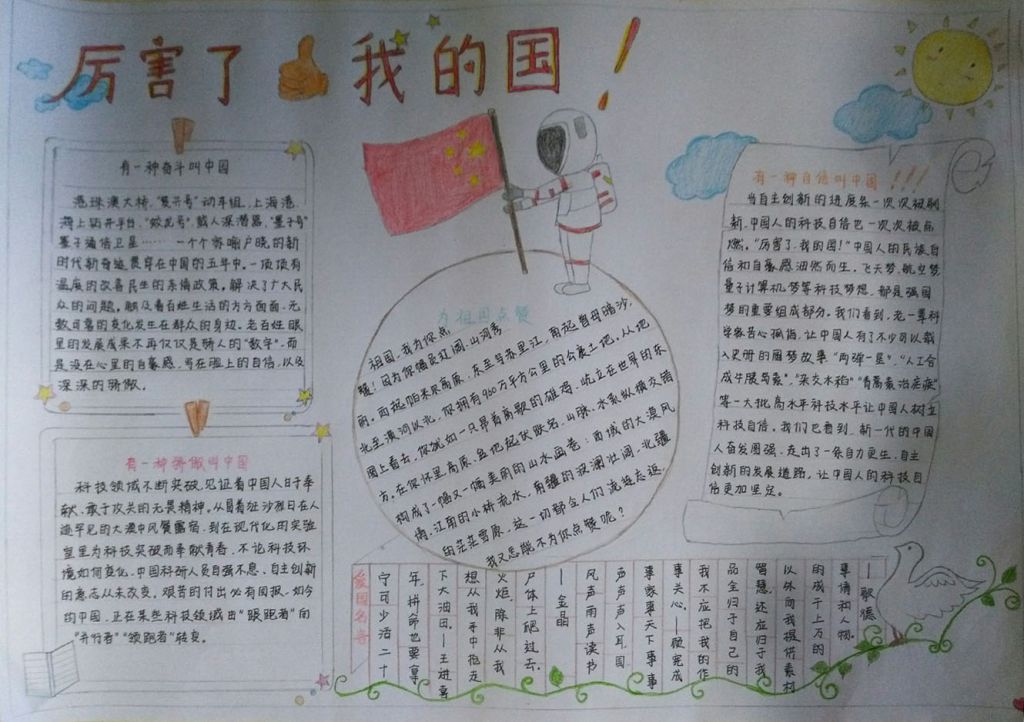 厉害了我的国!
有一种奋斗叫中国
港珠澳大桥,“复兴号”动车组,上海港
海上钻井平台,“蛟龙号”载人深潜器,“墨子号”
量子通信卫星……一个个家喻户晓的新
时代新奇迹贯穿在中国的五年中。一项项有
温度的改善民生的系情政策,解决了广大民
众的问题,触及着百姓生活的方方面面,无
数可喜的变化发生在群众的身边,老百姓眼
里的发展成果不再仅仅是骄人的“数字”,而
是没在心里的自豪感,写在脸上的自信,以及
深深的骄傲。
有一种骄傲叫中国
科技领域不断突破,见证着中国人甘于奉
献、敢于攻关的无畏精神。从冒着烈沙烈日在人
迹罕见的大漠中风餐露宿,到在现代化的实验
室里为科技突破而奉献青春,不论科技环
境如何变化,中国科研人员自强不息、自主创新
的意志从未改变。艰苦的付出必有回报,如今
的中国,正在某些科技领域由“跟跑者”向
“并行者”“领跑者”转变。
为祖国点赞
祖国,我为你点
赞!因为你幅员辽阔,山河秀
丽。西起帕米尔高原,东至乌苏里江,南起曾母暗沙,
北至漠河以北,你拥有960万平方公里的公袤土地。从地
图上看去,你就如一只昂着高歌的雄鸡,屹立在世界的东
方。在你怀里高原、盆地起伏跌宕,山脉、水系纵横交错
构成了一幅又一幅美丽的山水画卷:西域的大漠风
情,江南的小桥流水,南疆的波澜壮阔,北疆
的茫茫雪原,这一切都令人们流连忘返,
我又怎能不为你点赞呢?
有一种自信叫中国!!!
当自主创新的进展条一次次被刷
新,中国人的科技自信也一次次被点
燃。“厉害了,我的国!”中国人的民族自
信和自豪感油然而生,飞天梦、航空梦
量子计算机梦等科技梦想,都是强国
梦的重要组成部分。我们看到,老一辈科
学家苦心孤诣,让中国人有了不少可以载
入史册的圆梦故事“两弹一星”、“人工合
成牛胰岛素”、“杂交水稻”“青蒿素治疟疾”
等一大批高水平科技水平让中国人树立
科技自信。我们也看到,新一代的中国
人奋发图强,走出了一条自力更生、自主
创新的发展道路,让中国人的科技自
信更加坚定。
爱国名言
宁可少活二十
年,拼命也要拿
下大油田。—王进喜
想从我手中抢走
火炬,除非从我
尸体上踏过去。
—金晶
风声雨声读书
声声声入耳,国
事家事天下事事
事关心。—顾宪成
我不应把我的作
品全归于自己的
智慧,还应归于我
以外向我提供素材
的成千上万的
事情和人物。
—歌德